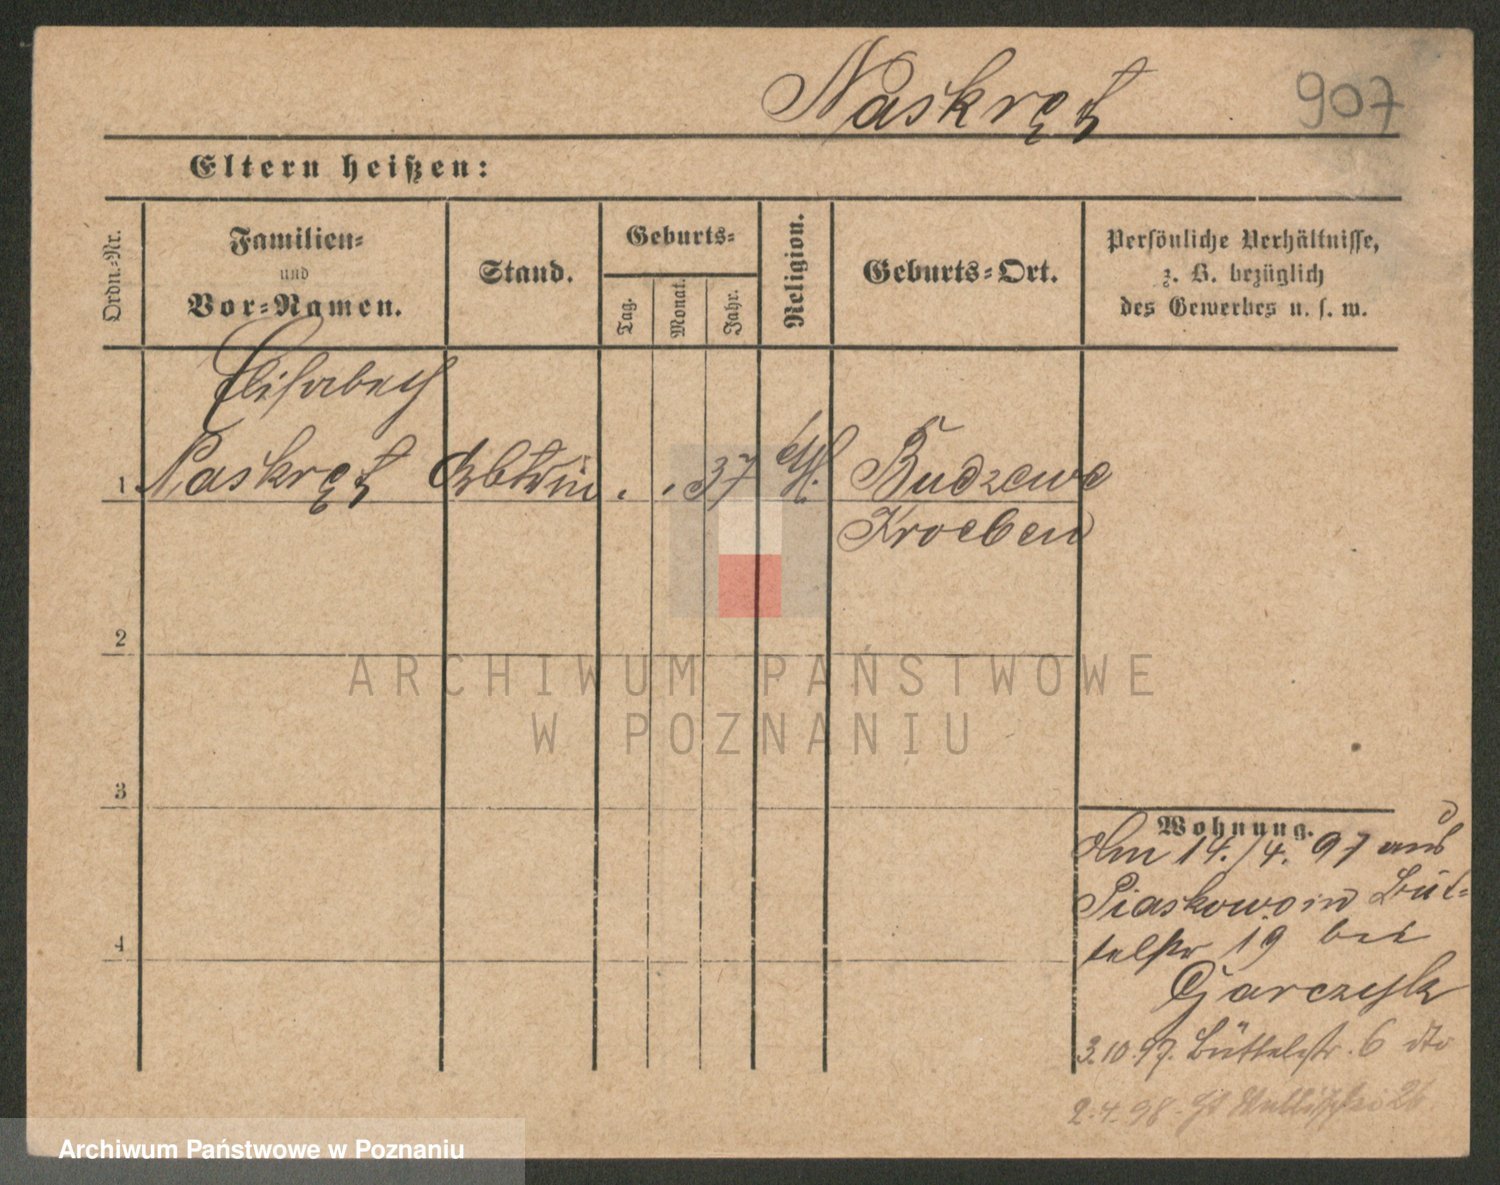 Naskręt 907
Eltern heißen:
Ordn.-Nr.
Familien-
und
Vor-Namen.
Stand.
Geburts-
Tag.
Monat.
Jahr.
Religion.
Geburts-Ort.
Persönliche Verhältnisse,
z. B. bezüglich
des Gewerbes u. s. w.
Elisabeth
1 Naskręt . . 37 Budzewo
Kroeben
2
3
4
ARCHIWUM PAŃSTWOWE
W POZNANIU
Wohnung.
Am 14./4. 97 aus
Piaskowo in Büt-
telstr 19 bei
Garczysk
3.10.97. Büttelstr. 6 dto
2.4.98. 26
Archiwum Państwowe w Poznaniu